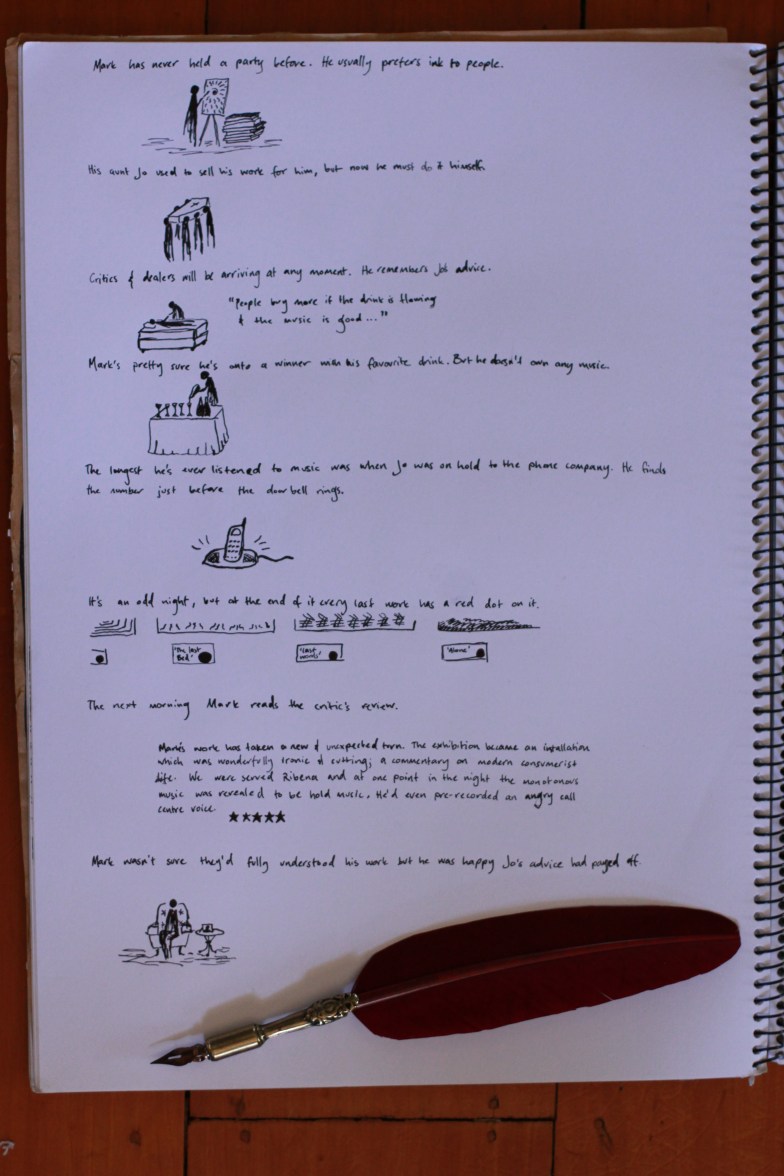 Mark has never held a party before. He usually prefers ink to people.
His aunt Jo used to sell his work for him, but now he must do it himself.
Critics & dealers will be arriving at any moment. He remembers Jo's advice.
"People buy more if the drink is flowing
& the music is good..."
Mark's pretty sure he's onto a winner with his favourite drink. But he doesn't own any music.
The longest he's ever listened to music was when Jo was on hold to the phone company. He finds
the number just before the door bell rings.
It's an odd night, but at the end of it every last work has a red dot on it.
'The last
Bed'
'Last
words'
'Alone'
The next morning Mark reads the critic's review.
Mark's work has taken a new & unexpected turn. The exhibition became an installation
which was wonderfully ironic & cutting; a commentary on modern consumerist
life. We were served Ribena and at one point in the night the monotonous
music was revealed to be hold music. He'd even pre-recorded an angry call
centre voice. ★★★★★
Mark wasn't sure they'd fully understood his work but he was happy Jo's advice had payed off.